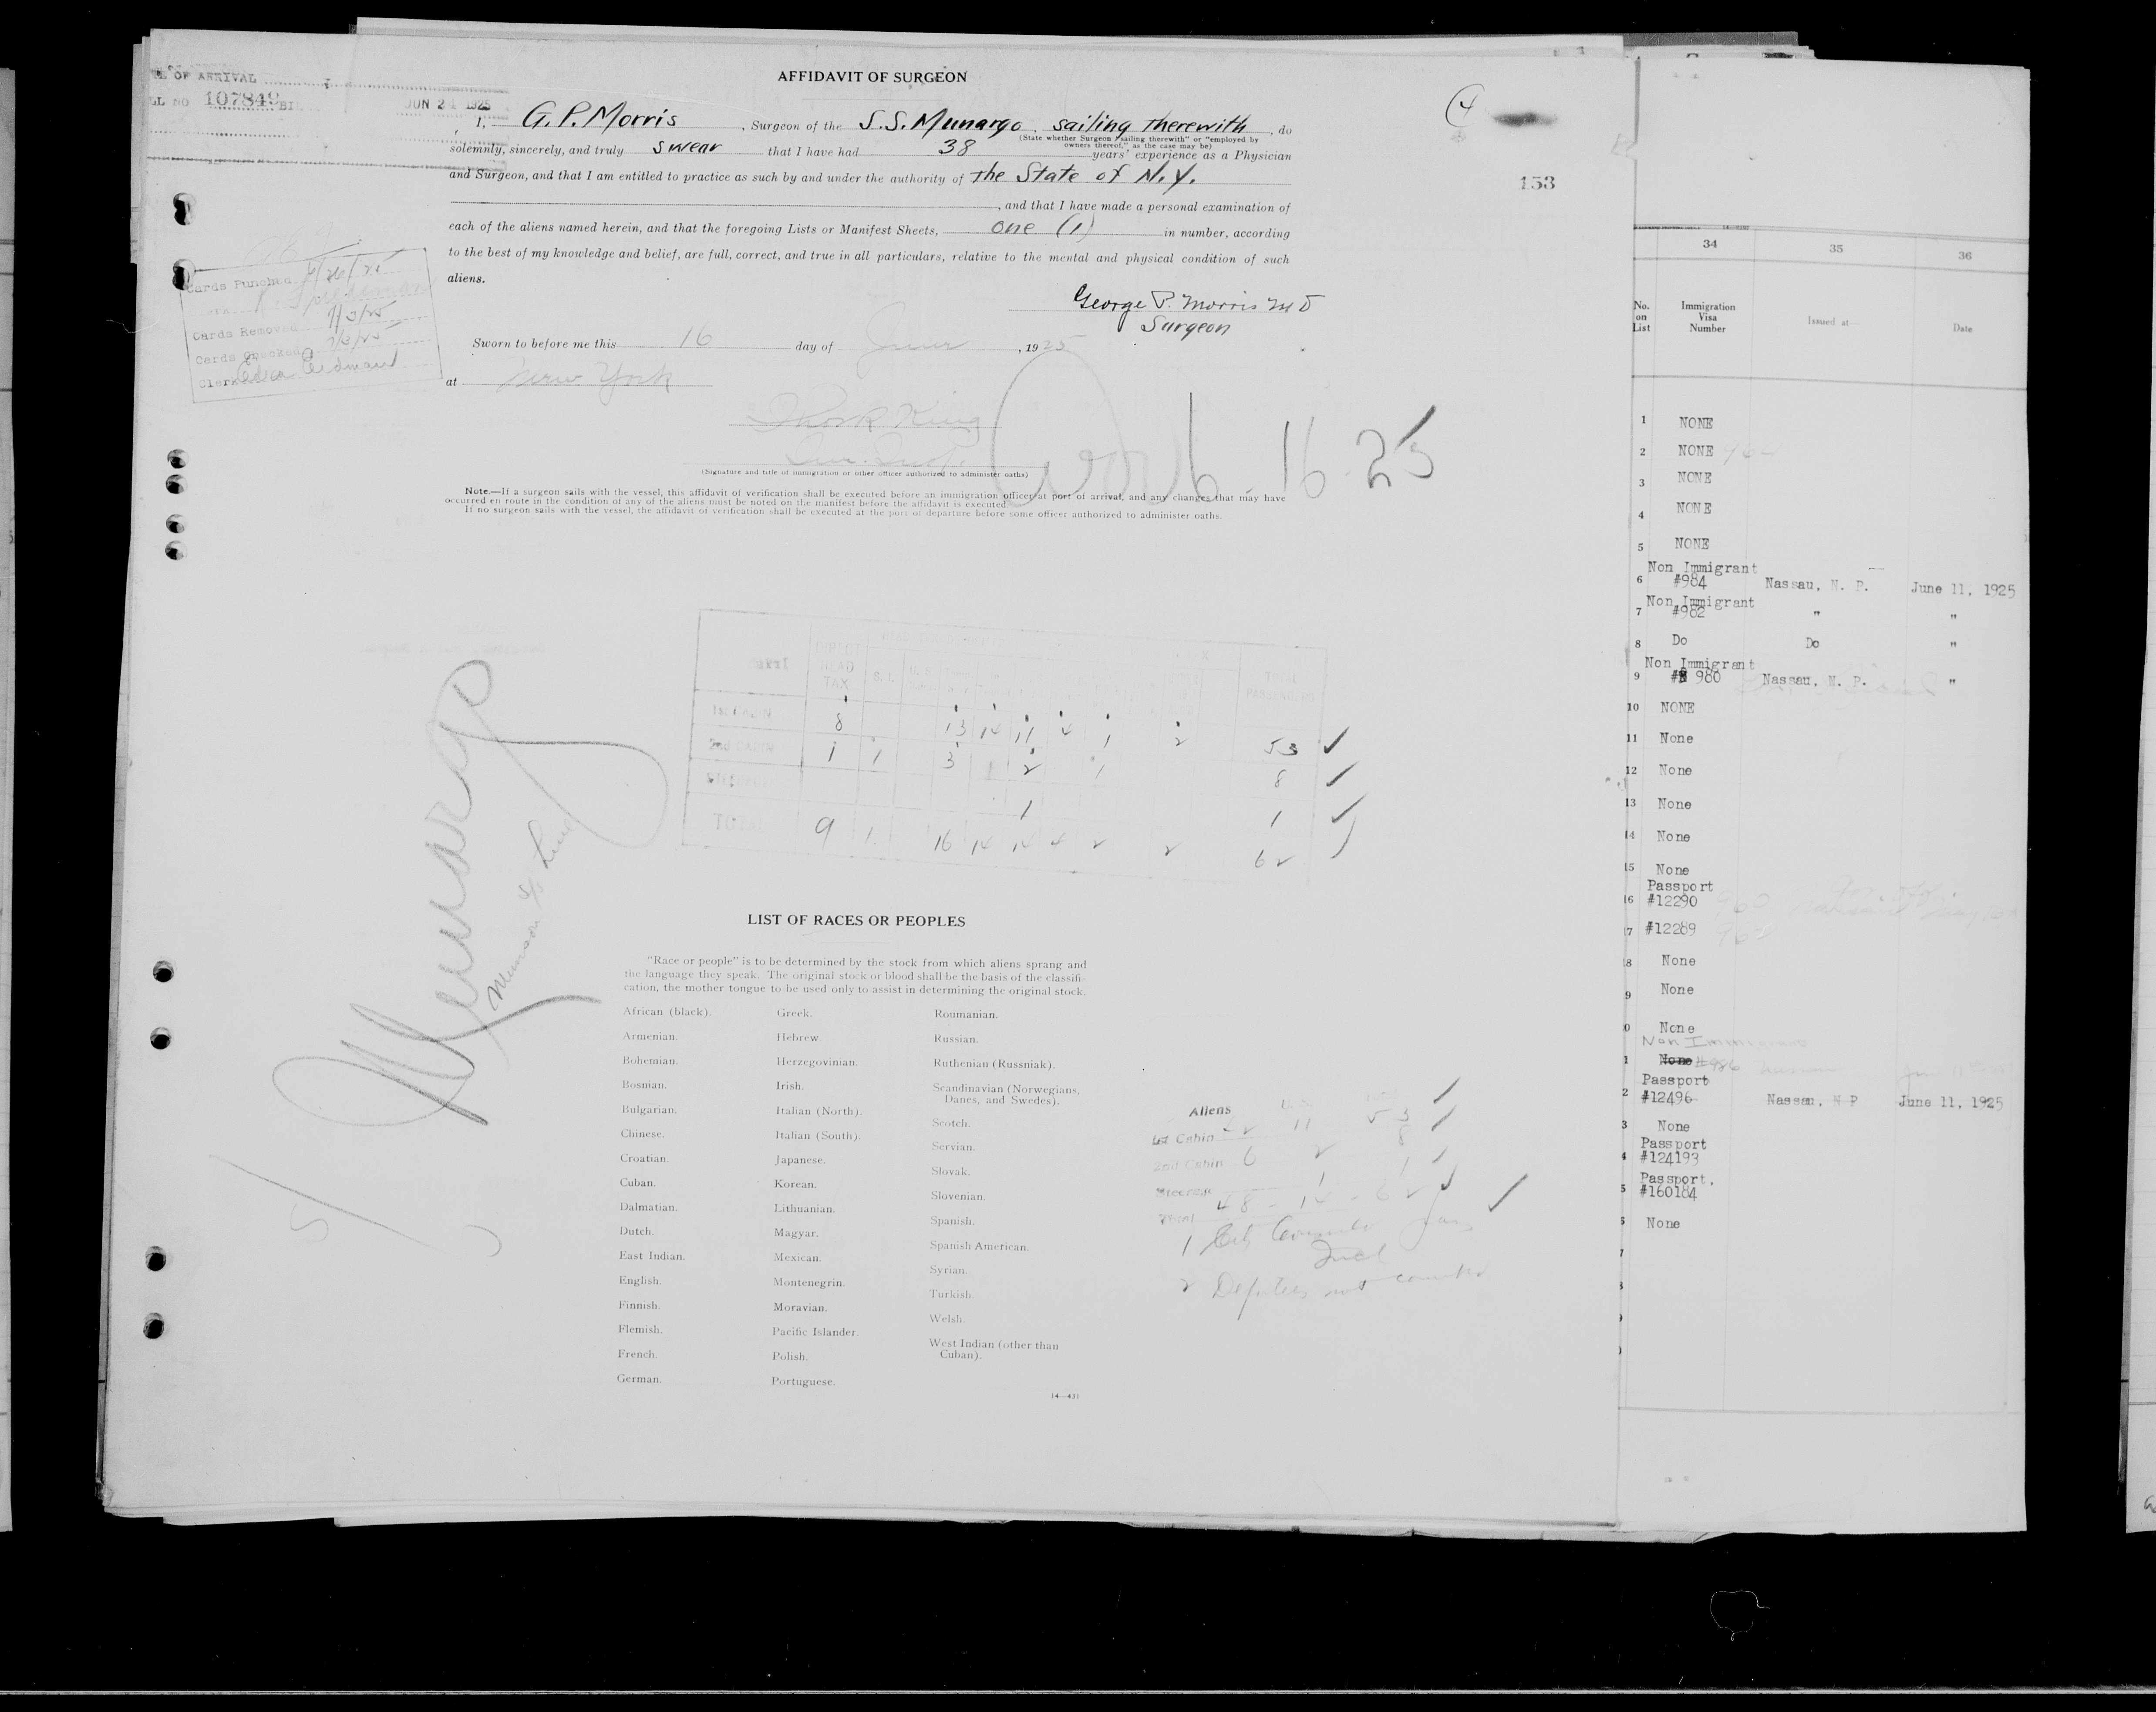 OF ARRIVAL
LL NO 107849
JUN 2 1925
AFFIDAVIT OF SURGEON
4
I, G. P. Morris, Surgeon of the S.S. Munargo, sailing therewith, do
(State whether Surgeon "sailing therewith" or "employed by
owners thereof," as the case may be)
solemnly, sincerely, and truly swear that I have had 38 years' experience as a Physician
and Surgeon, and that I am entitled to practice as such by and under the authority of the State of N.Y.
, and that I have made a personal examination of
each of the aliens named herein, and that the foregoing Lists or Manifest Sheets, one (1) in number, according
to the best of my knowledge and belief, are full, correct, and true in all particulars, relative to the mental and physical condition of such
aliens.
George P. Morris M D
Surgeon
153
Cards Punched
Cards Removed 7/3/25
Cards Checked 7/3/25
Clerk
Sworn to before me this 16 day of June, 1925
at New York
(Signature and title of immigration or other officer authorized to administer oaths)
6-16-25
Note.—If a surgeon sails with the vessel, this affidavit of verification shall be executed before an immigration officer at port of arrival, and any changes that may have
occurred en route in the condition of any of the aliens must be noted on the manifest before the affidavit is executed.
If no surgeon sails with the vessel, the affidavit of verification shall be executed at the port of departure before some officer authorized to administer oaths.
DIRECT HEAD TAX S.I. TOTAL PASSENGERS
1st CABIN 8 13 14 11 4 1 2 53
2nd CABIN 1 1 3 2 1 8
1 1
TOTAL 9 1 16 14 14 4 2 2 62
Munargo
Munson S/S Line
LIST OF RACES OR PEOPLES
"Race or people" is to be determined by the stock from which aliens sprang and
the language they speak. The original stock or blood shall be the basis of the classifi-
cation, the mother tongue to be used only to assist in determining the original stock.
African (black).
Armenian.
Bohemian.
Bosnian.
Bulgarian.
Chinese.
Croatian.
Cuban.
Dalmatian.
Dutch.
East Indian.
English.
Finnish.
Flemish.
French.
German.
Greek.
Hebrew.
Herzegovinian.
Irish.
Italian (North).
Italian (South).
Japanese.
Korean.
Lithuanian.
Magyar.
Mexican.
Montenegrin.
Moravian.
Pacific Islander.
Polish.
Portuguese.
Roumanian.
Russian.
Ruthenian (Russniak).
Scandinavian (Norwegians,
Danes, and Swedes).
Scotch.
Servian.
Slovak.
Slovenian.
Spanish.
Spanish American.
Syrian.
Turkish.
Welsh.
West Indian (other than
Cuban).
14—431
Aliens
1st Cabin 42 11 53
2nd Cabin 6 2 8
Steerage 1 1
Total 48 - 14 - 62
2 Deputees not counted
34 35 36
No. on List
Immigration Visa Number
Issued at—
Date
1 NONE
2 NONE
3 NONE
4 NONE
5 NONE
Non Immigrant
6 #984 Nassau, N. P. June 11, 1925
Non Immigrant
7 #982 " "
8 Do Do "
Non Immigrant
9 # 980 Nassau, N. P. "
10 NONE
11 None
12 None
13 None
14 None
15 None
Passport
16 #12290
17 #12289
18 None
9 None
0 None
Non Immigrant
1 None #986 Nassau
Passport
2 #12496 Nassau, N P June 11, 1925
3 None
Passport
4 #124193
Passport.
5 #160184
6 None